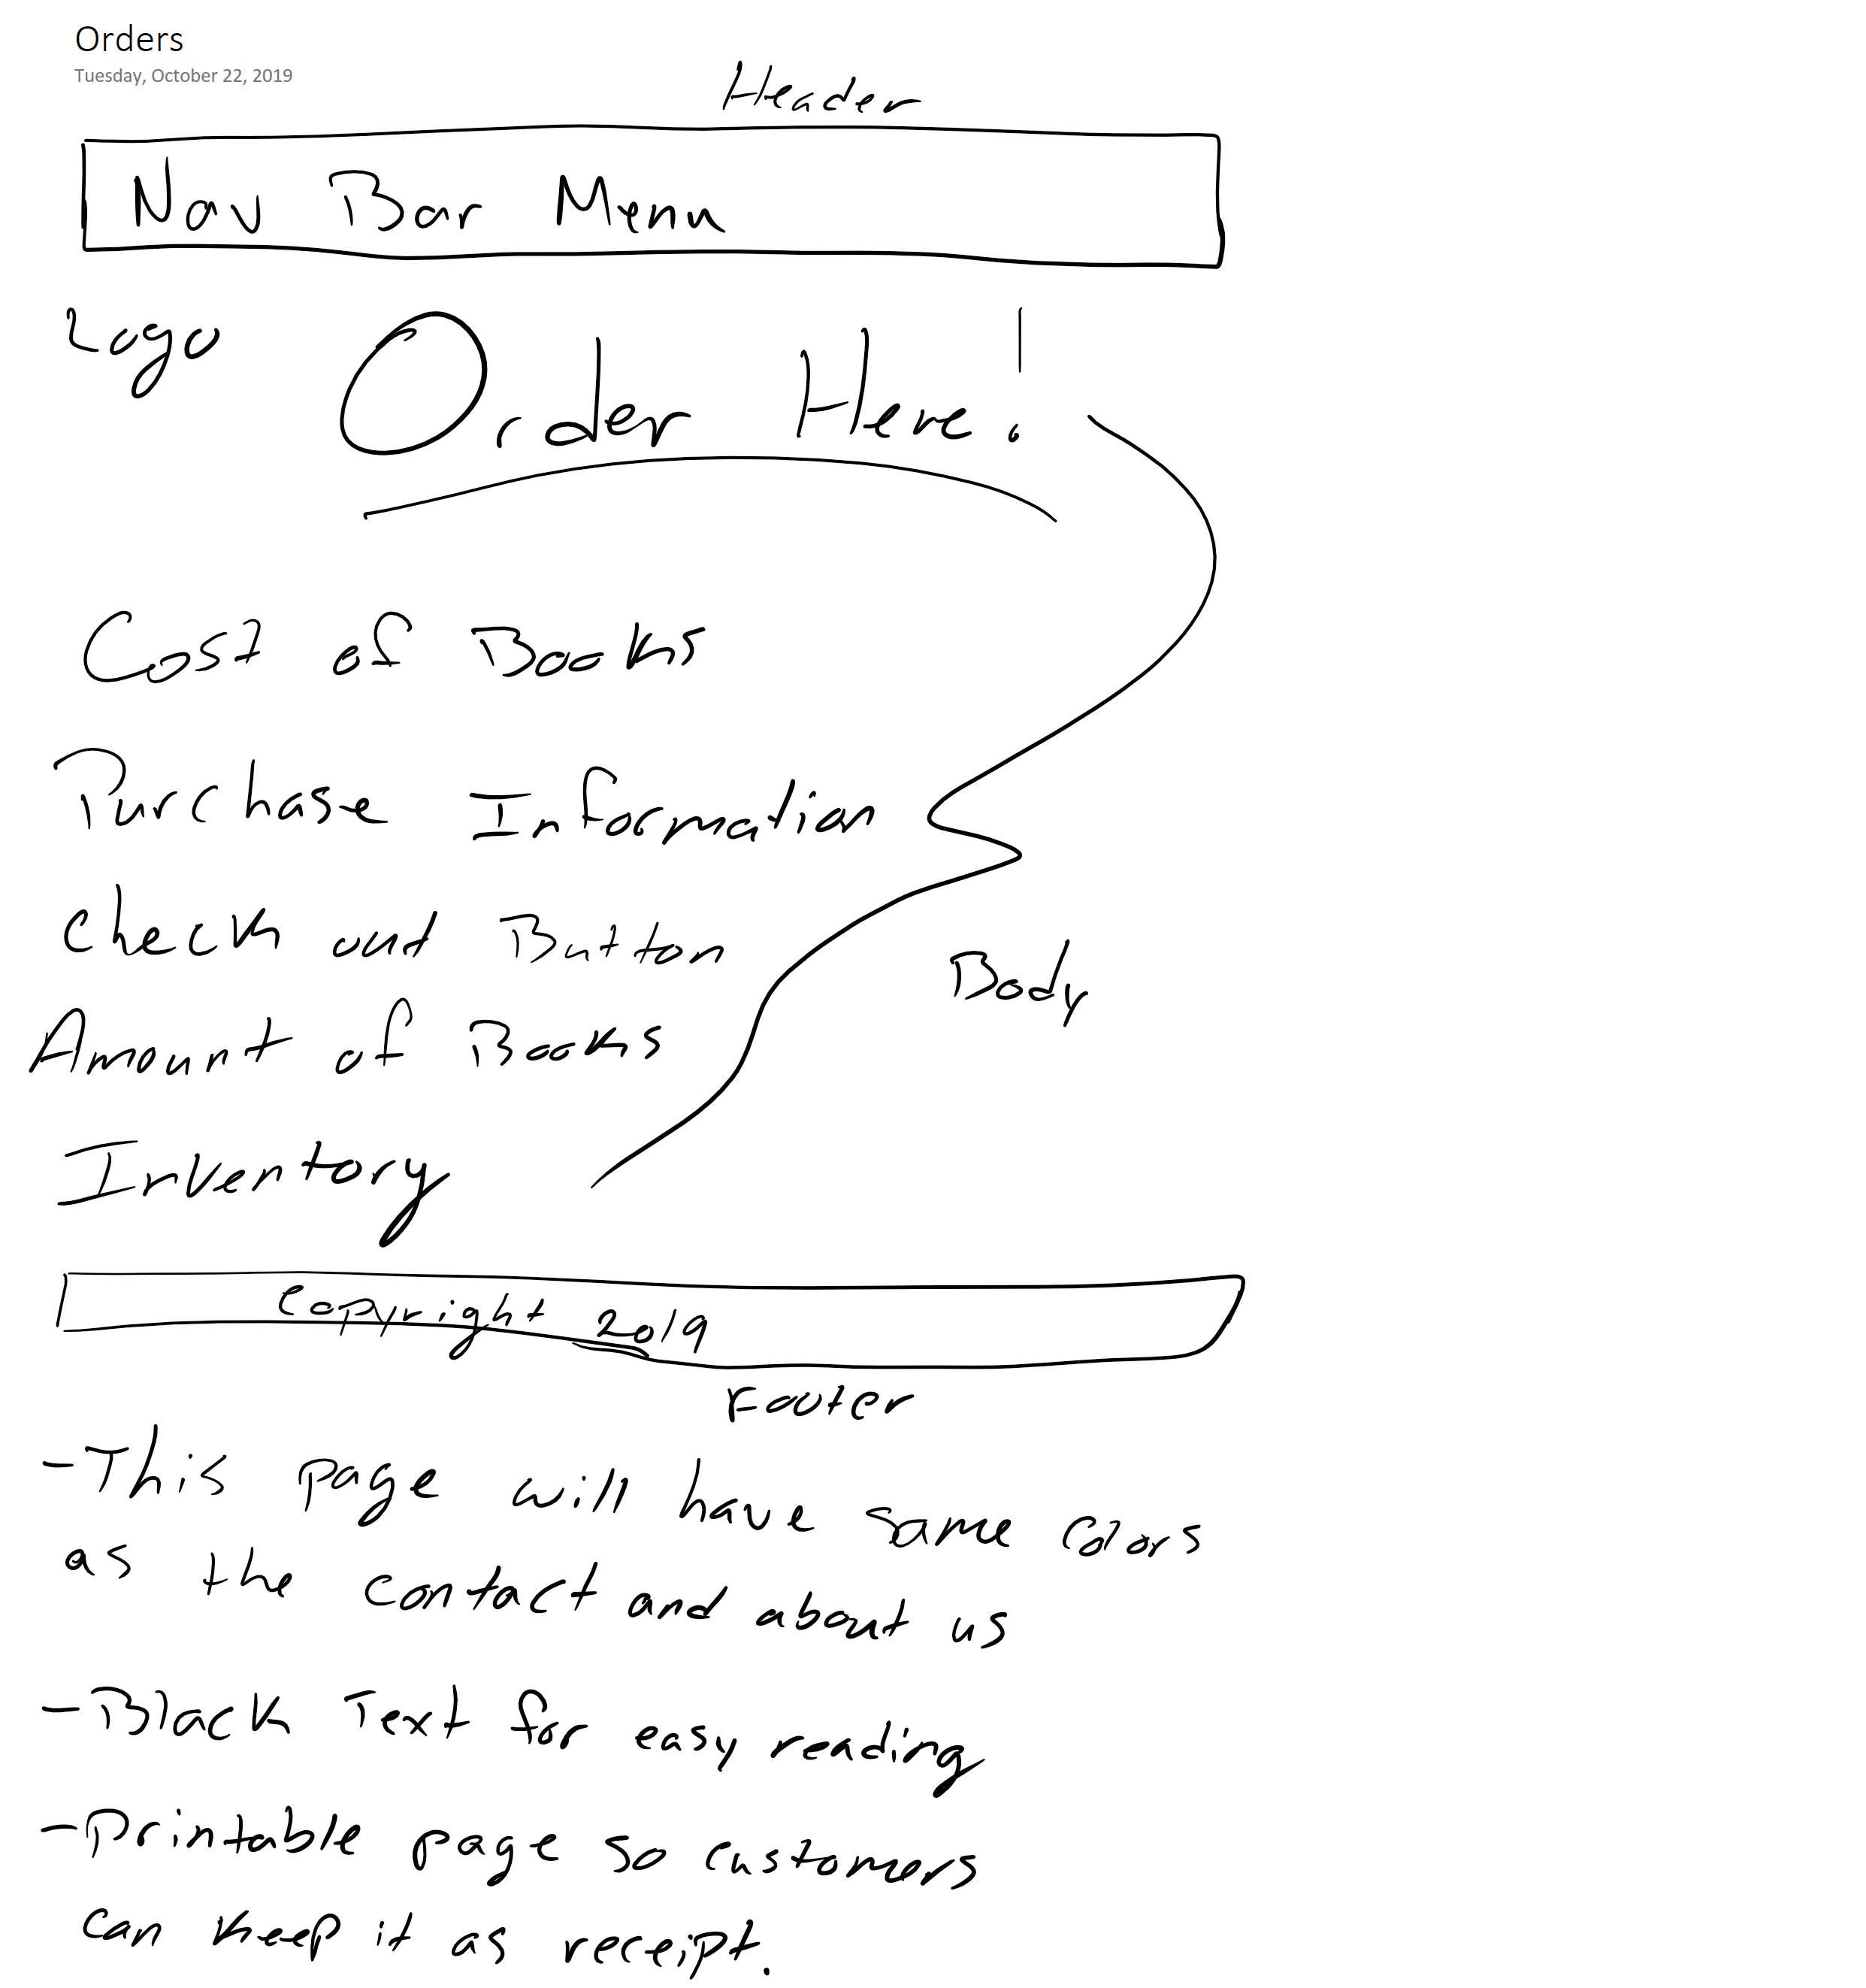 Orders
Tuesday, October 22, 2019
Header
Nav Bar Menu
Logo
Order Here!
Cost of Books
Purchase Information
Check out Button
Body
Amount of Books
Inventory
Copyright 2019
Footer
-This page will have same colors
as the contact and about us
-Black Text for easy reading
-Printable page so customers
can keep it as receipt.